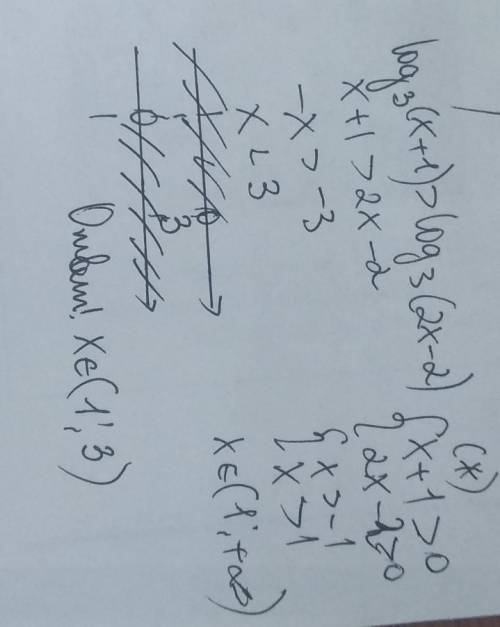 log₃(x+1)>log₃(2x-2)
x+1>2x-2
-x>-3
x<3
3
1
Ответ: x∈(1;3)
(*)
{x+1>0
{2x-2>0
{x>-1
{x>1
x∈(1;+∞)